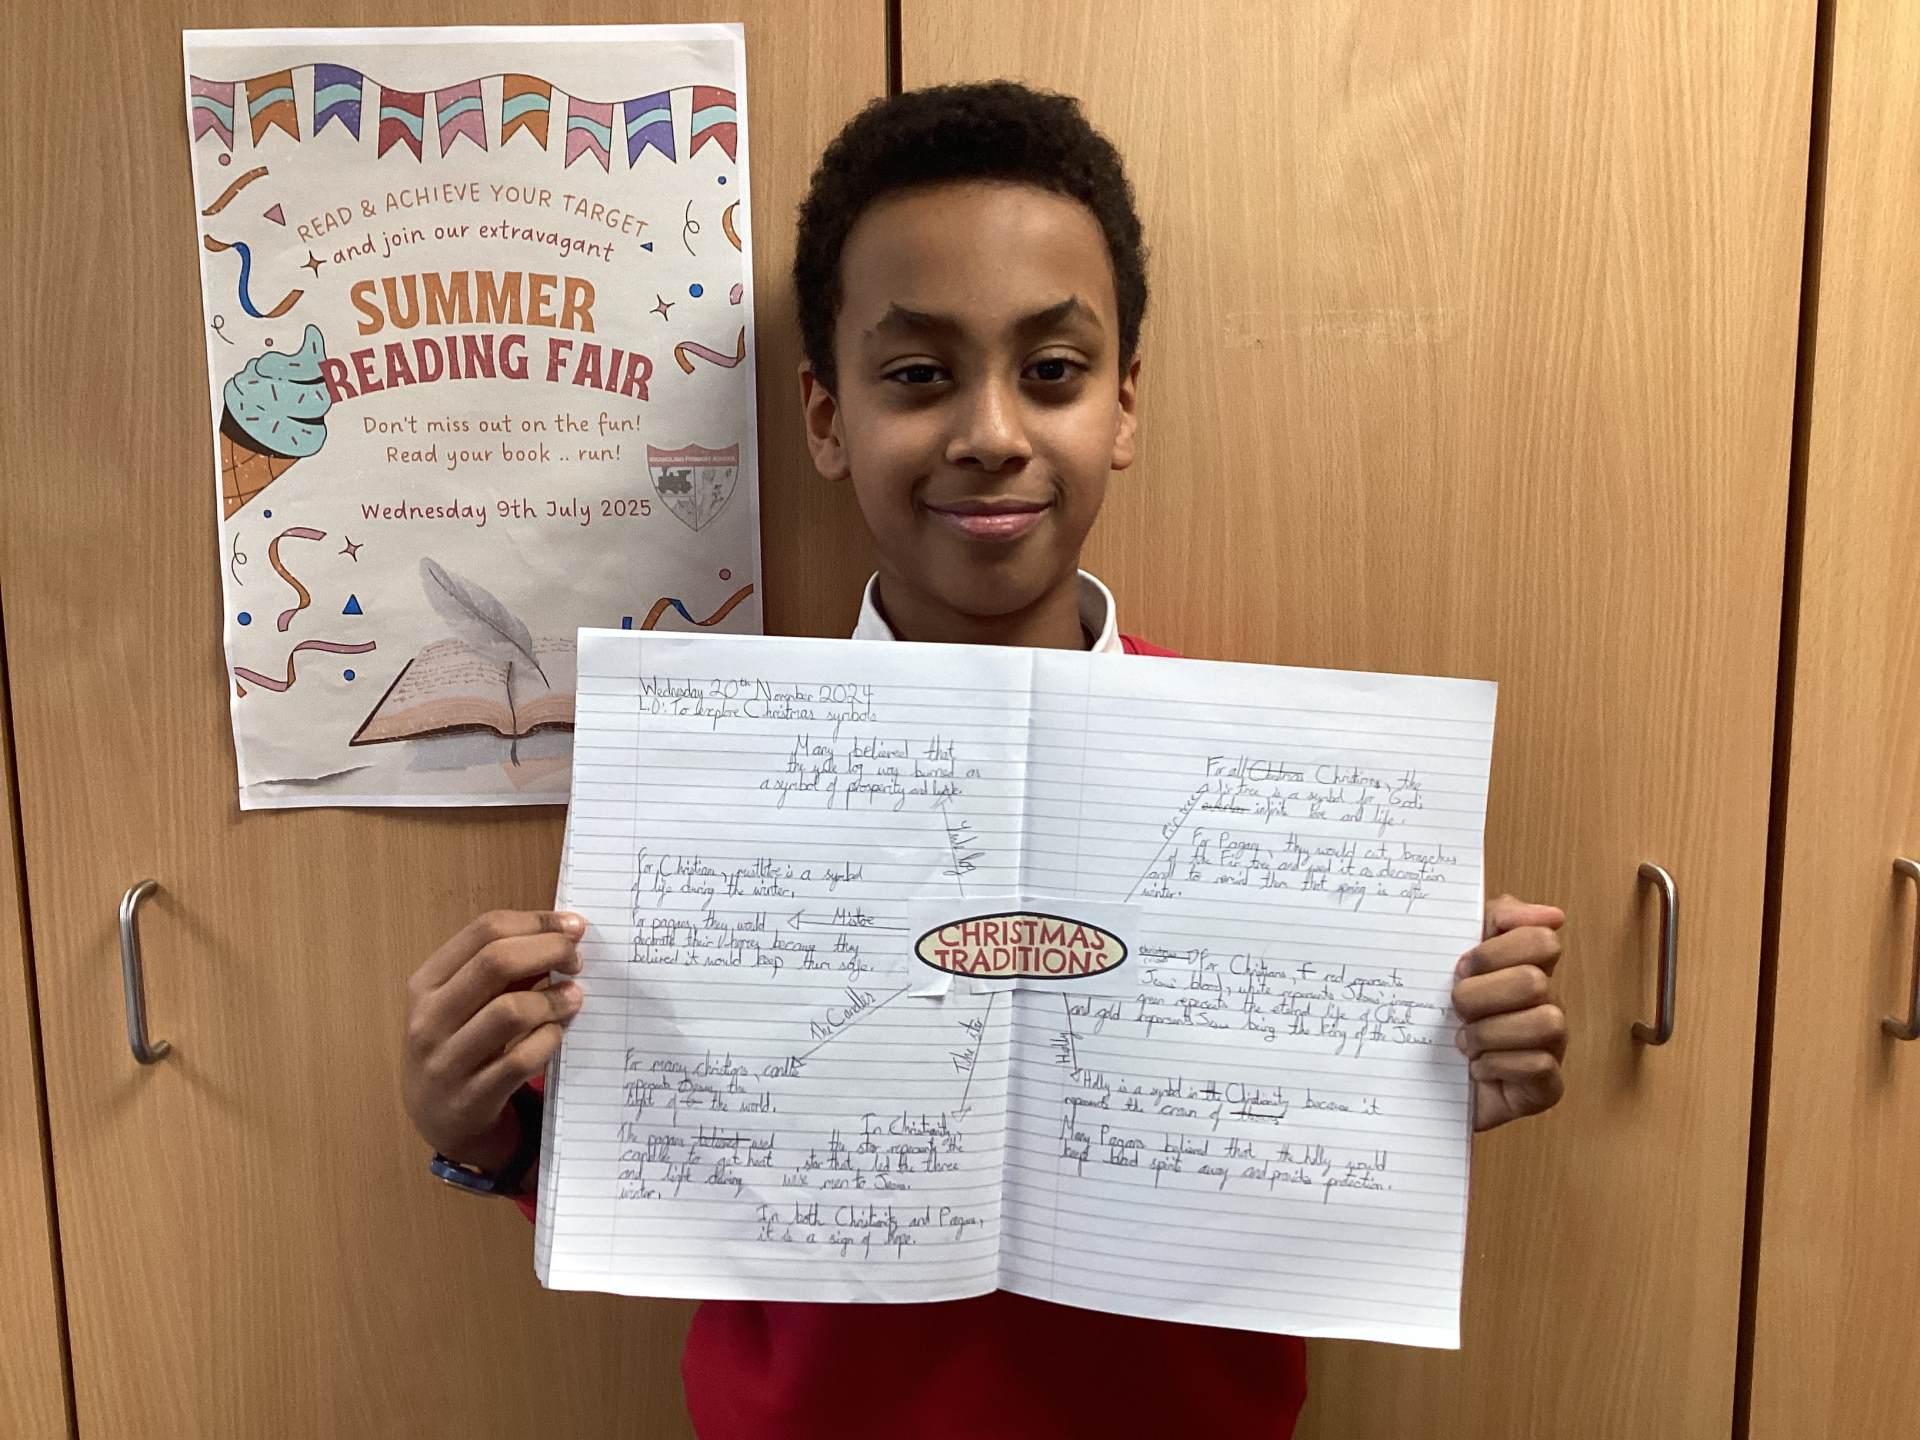 READ & ACHIEVE YOUR TARGET
and join our extravagant
SUMMER
READING FAIR
Don't miss out on the fun!
Read your book .. run!
Wednesday 9th July 2025
PRIMARY SCHOOL
Wednesday 20th November 2024
L.O: To explore Christmas symbols
Many believed that
the yule log was burned as
a symbol of prosperity and luck.
Yule log
For Christian, mistltoe is a symbol
of life during the winter.
For pagans, they would
decorate their homes because they
believed it would keep them safe.
Mistoe
CHRISTMAS
TRADITIONS
The Candles
For many christians, candle
represents Jesus, the
light of the world.
The pagans believed used
candles to get heat
and light during
winter.
The star
In Christianity,
the star represents the
star that led the three
wise men to Jesus.
In both Christianity and Pagans,
it is a sign of hope.
Fir tree
For all Christmas Christians, the
fir tree is a symbol for God's
infinite love and life.
For Pagans, they would cut branches
of the Fir tree and used it as decoration
and to remind them that spring is after
winter.
For Christians, red represents
Jesus' blood, white represents Jesus'
green represents the eternal life of Christ
and gold represents Jesus being the king of the Jews.
Holly
Holly is a symbol in the Christianity because it
represents the crown of thorns
Many Pagans believed that the holly would
keep bad spirits away and provide protection.